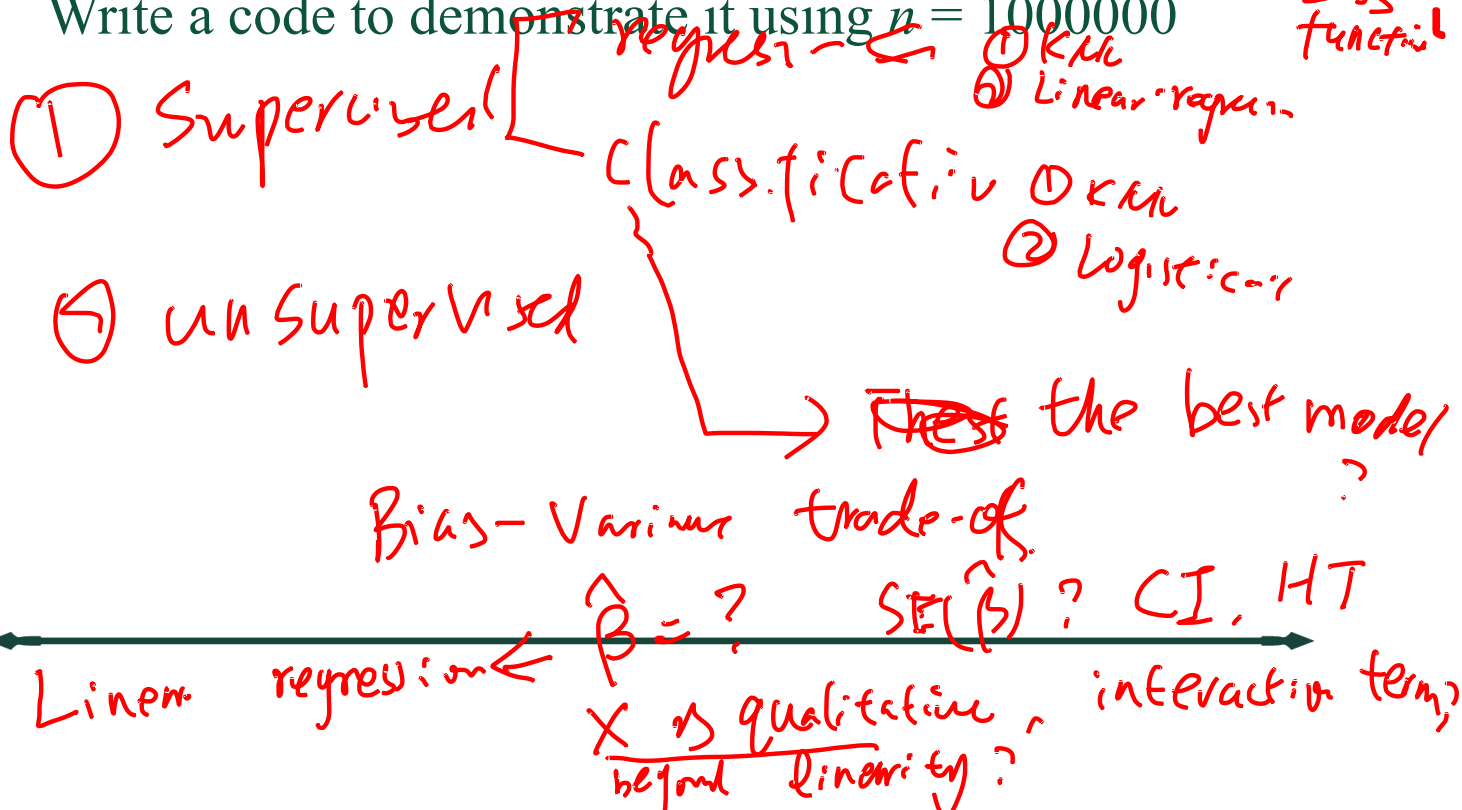 Write a code to demonstrate it using n = 1000000
function
① Supervised
regress- ← ① KNN
② Linear regress
Classificati ① KNN
② Logistical
② unsupervised
the best model
?
Bias-Variance trade-of
β̂ = ? SE(β̂) ? CI, HT
Linear regression ←
X is qualitative, interaction term,
beyond linearity?